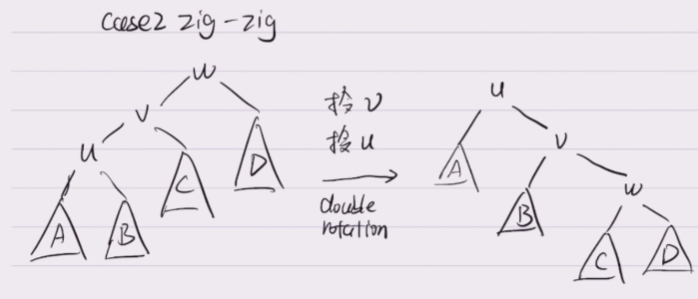 Case2 zig-zig
w
v
u
A
B
C
D
v
u
double
rotation
u
A
v
B
w
C
D